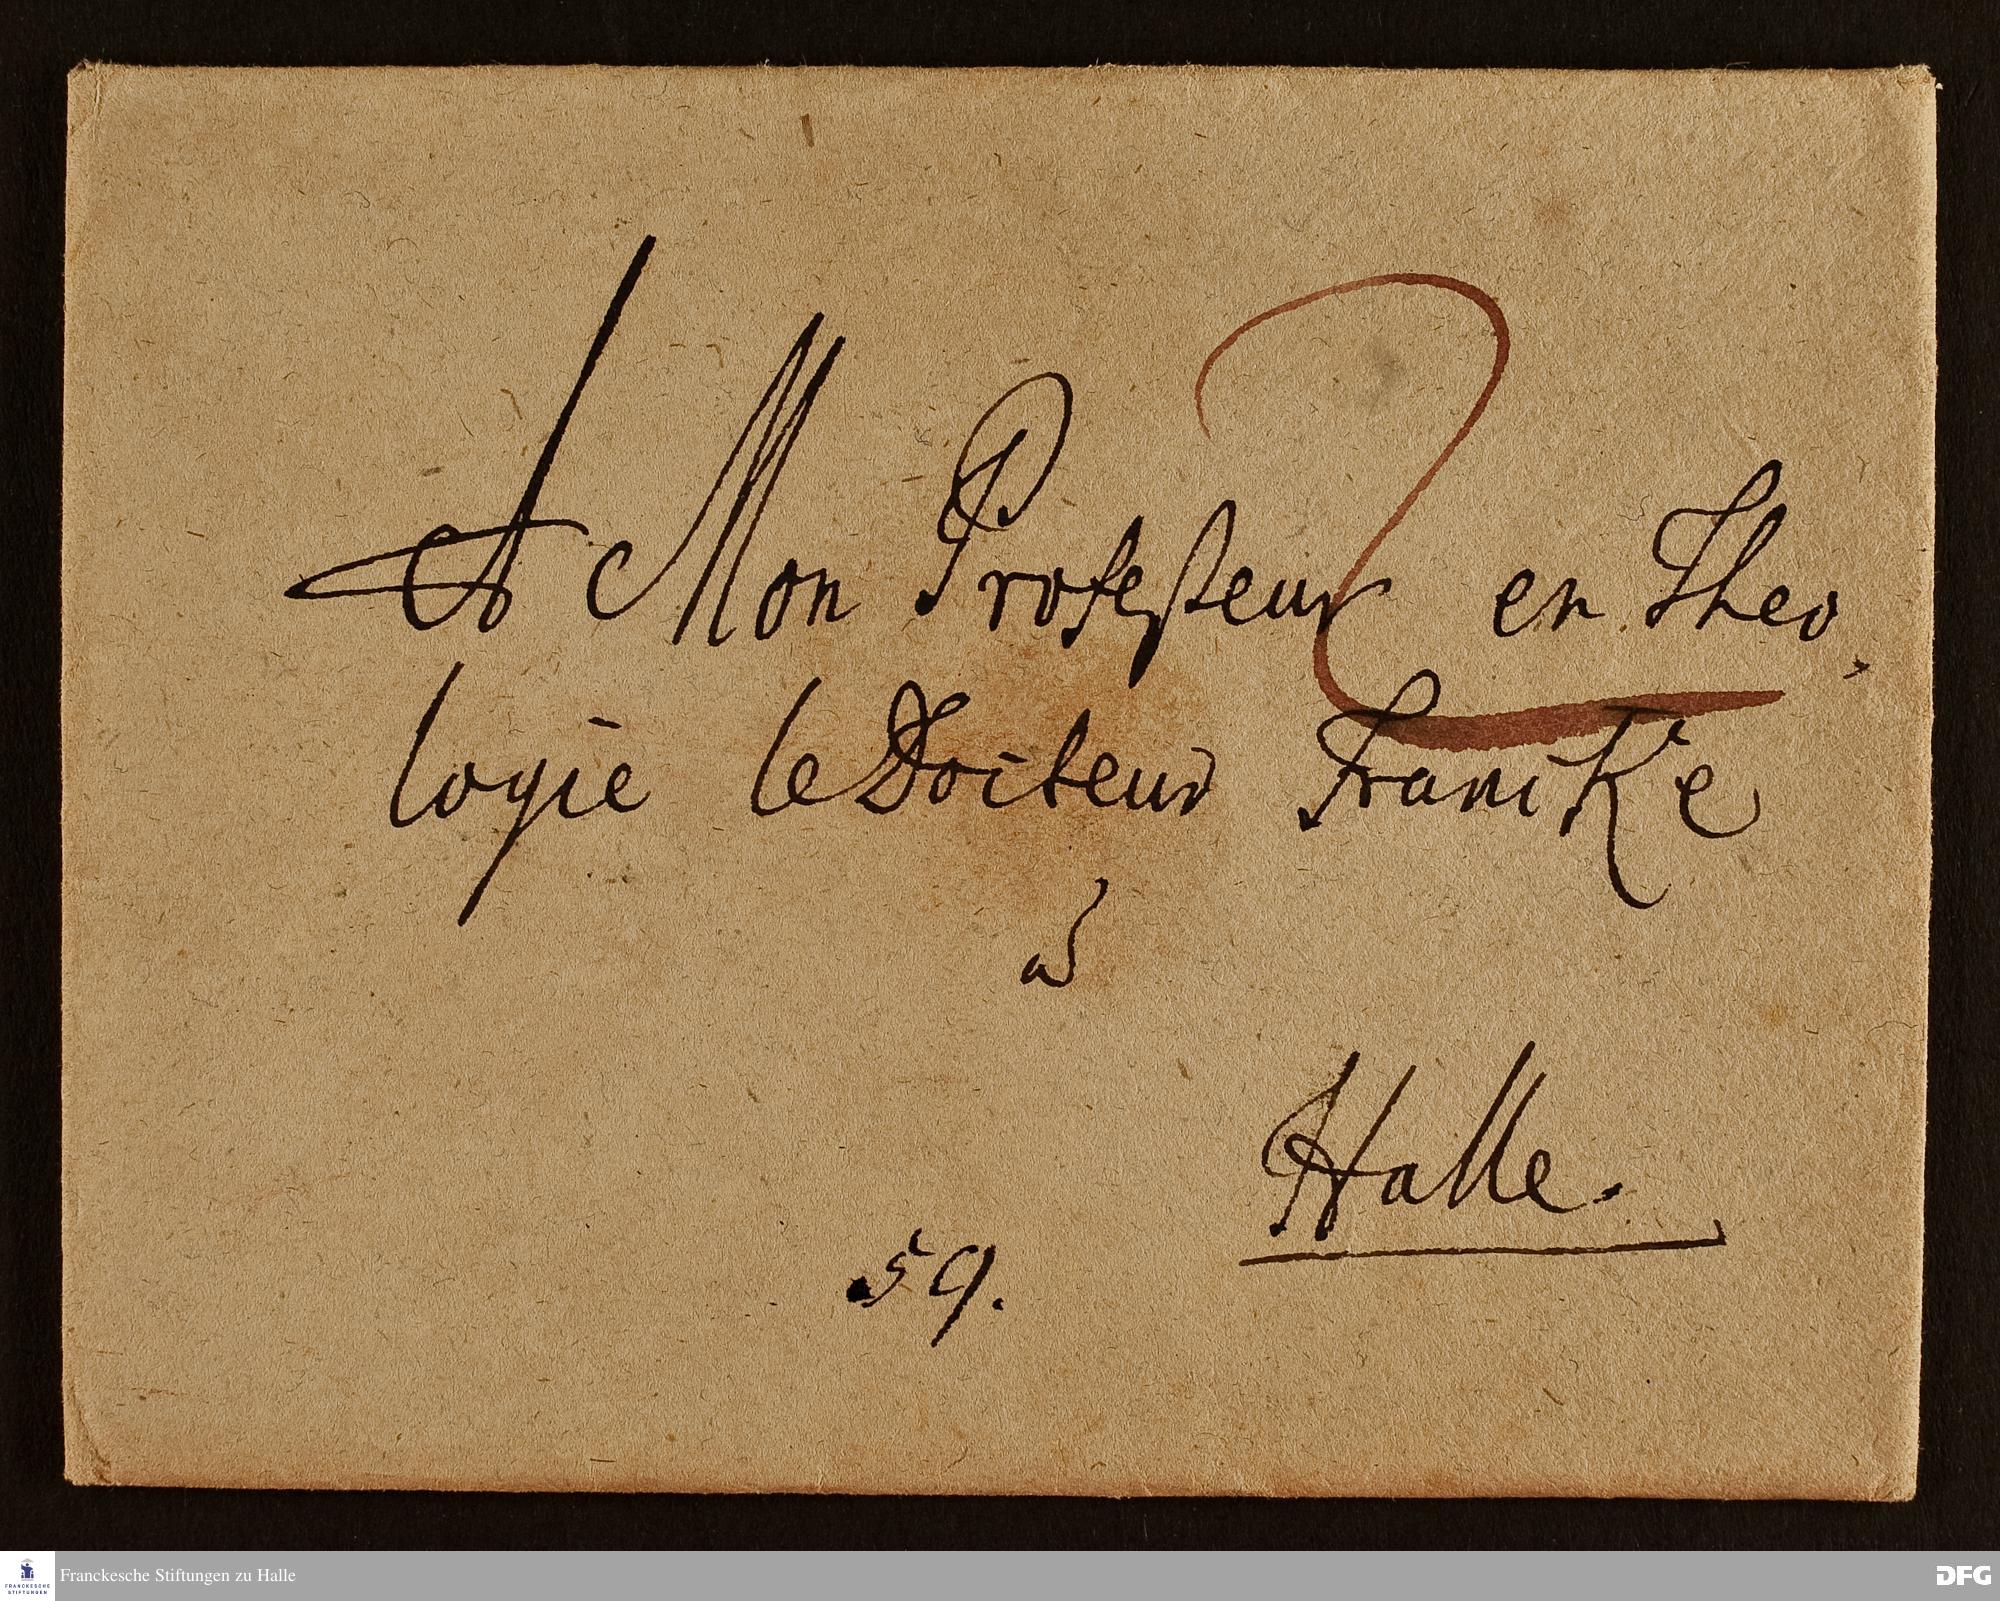 A Mon Professeur en Theo,
logie le Docteur Francke
à
Halle.
59.
Franckesche Stiftungen zu Halle
FRANCKESCHE
STIFTUNGEN
DFG